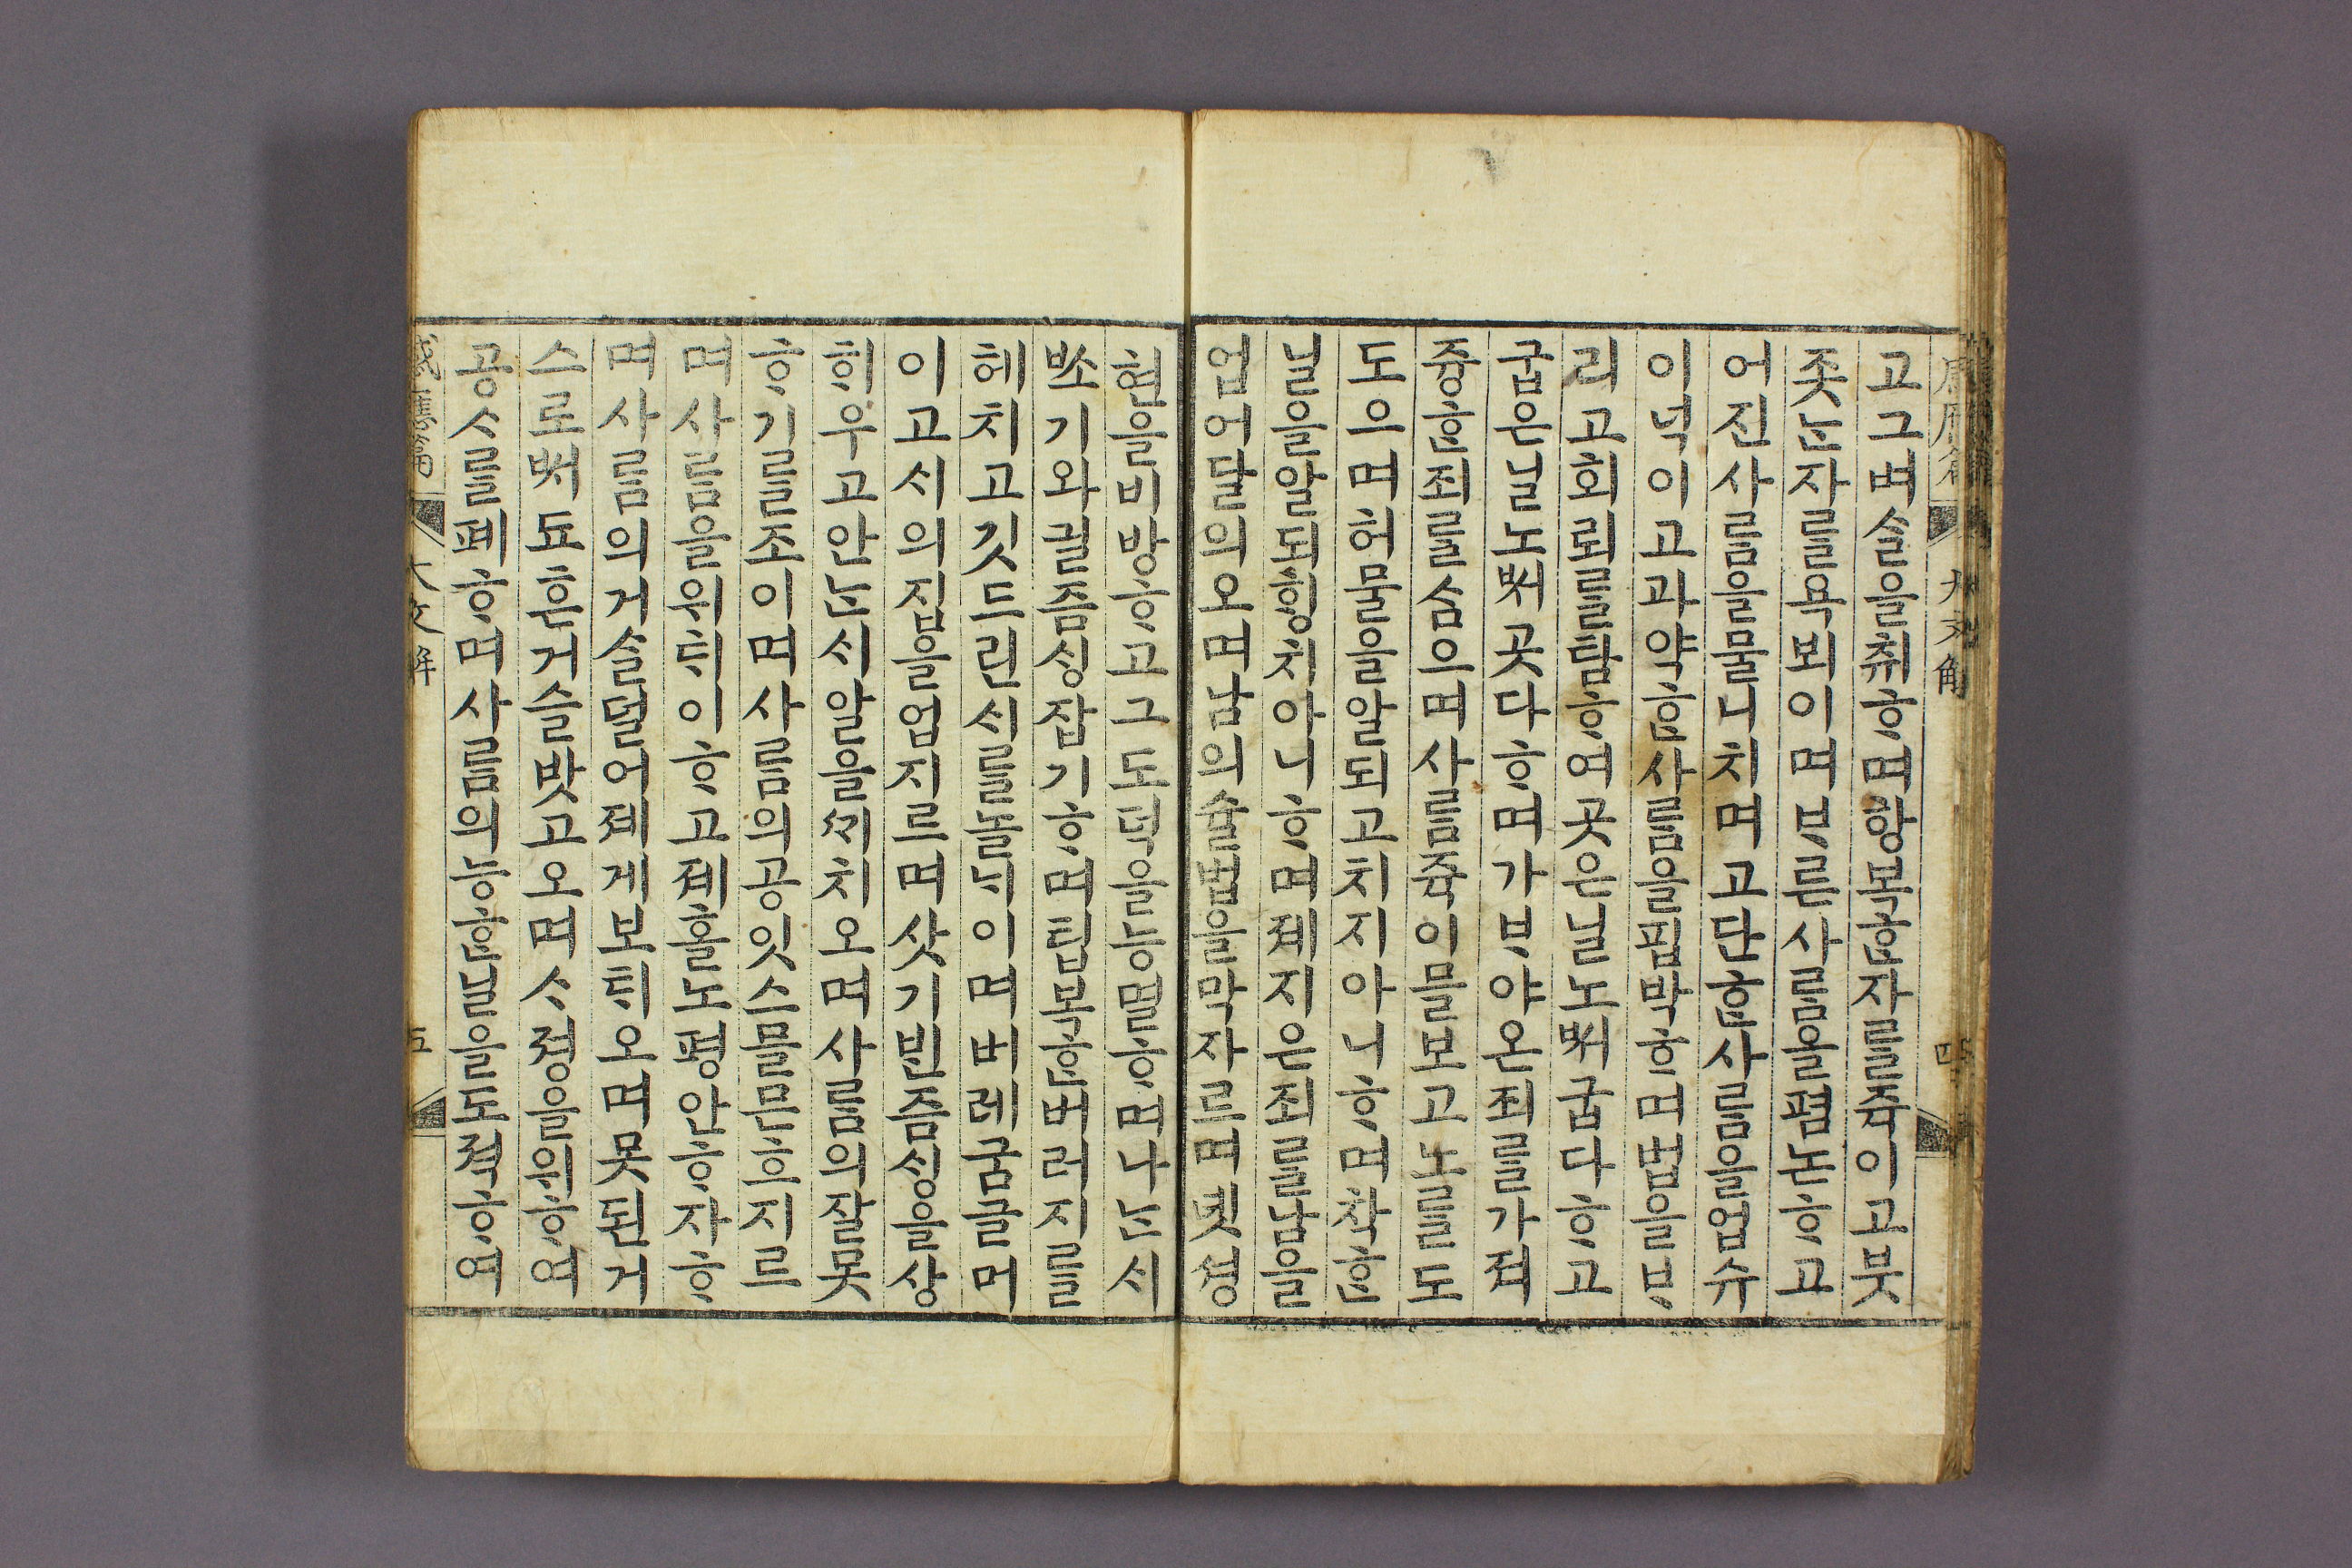 고그벼ᄉᆞᆯ을취ᄒᆞ며항복ᄒᆞᆫ자ᄅᆞᆯ죽이고뭇
좃ᄂᆞᆫ자ᄅᆞᆯ목뵈이며ᄇᆞᄅᆞᆫ사ᄅᆞᆷ을폄논ᄒᆞ고
어진사ᄅᆞᆷ을물니치며고단ᄒᆞᆫ사ᄅᆞᆷ을업슈
이녁이고과약ᄒᆞᆫ사ᄅᆞᆷ을핍박ᄒᆞ며법을ᄇᆞ
리고회뢰ᄅᆞᆯ탐ᄒᆞ여곳은닐노ᄡᅥ굽다ᄒᆞ고
굽은닐노ᄡᅥ곳다ᄒᆞ며가ᄇᆞ야온죄ᄅᆞᆯ가져
즁ᄒᆞᆫ죄ᄅᆞᆯ삼으며사ᄅᆞᆷ죽이믈보고노ᄅᆞᆯ도
도으며허믈을알되고치지아니ᄒᆞ며착ᄒᆞᆫ
닐을알되ᄒᆡᆼ치아니ᄒᆞ며제지은죄ᄅᆞᆯ남을
업어달의오며남의술법을막자르며녯셩
현을비방ᄒᆞ고그도덕을능멸ᄒᆞ며나ᄂᆞᆫᄉᆡ
ᄡᅩ기와긜즘ᄉᆡᆼ잡기ᄒᆞ며팁복ᄒᆞᆫ버러지ᄅᆞᆯ
헤치고깃드린ᄉᆡᄅᆞᆯ놀ᄂᆡ이며버레굼글머
이고ᄉᆡ의집을업지르며삿기ᄇᆡᆫ즘ᄉᆡᆼ을샹
ᄒᆡ우고안ᄂᆞᆫᄉᆡ알을ᄭᆡ치오며사ᄅᆞᆷ의잘못
ᄒᆞ기ᄅᆞᆯ죠이며사ᄅᆞᆷ의공잇ᄉᆞ믈문희지르
며사ᄅᆞᆷ을위ᄐᆡ이ᄒᆞ고제홀노평안ᄒᆞ쟈ᄒᆞ
며사ᄅᆞᆷ의거슬덜어제게보ᄐᆡ오며못된거
스로ᄡᅥ됴흔거슬밧고오며ᄉᆞ졍을위ᄒᆞ여
공ᄉᆞᄅᆞᆯ폐ᄒᆞ며사ᄅᆞᆷ의능ᄒᆞᆫ닐을도젹ᄒᆞ여